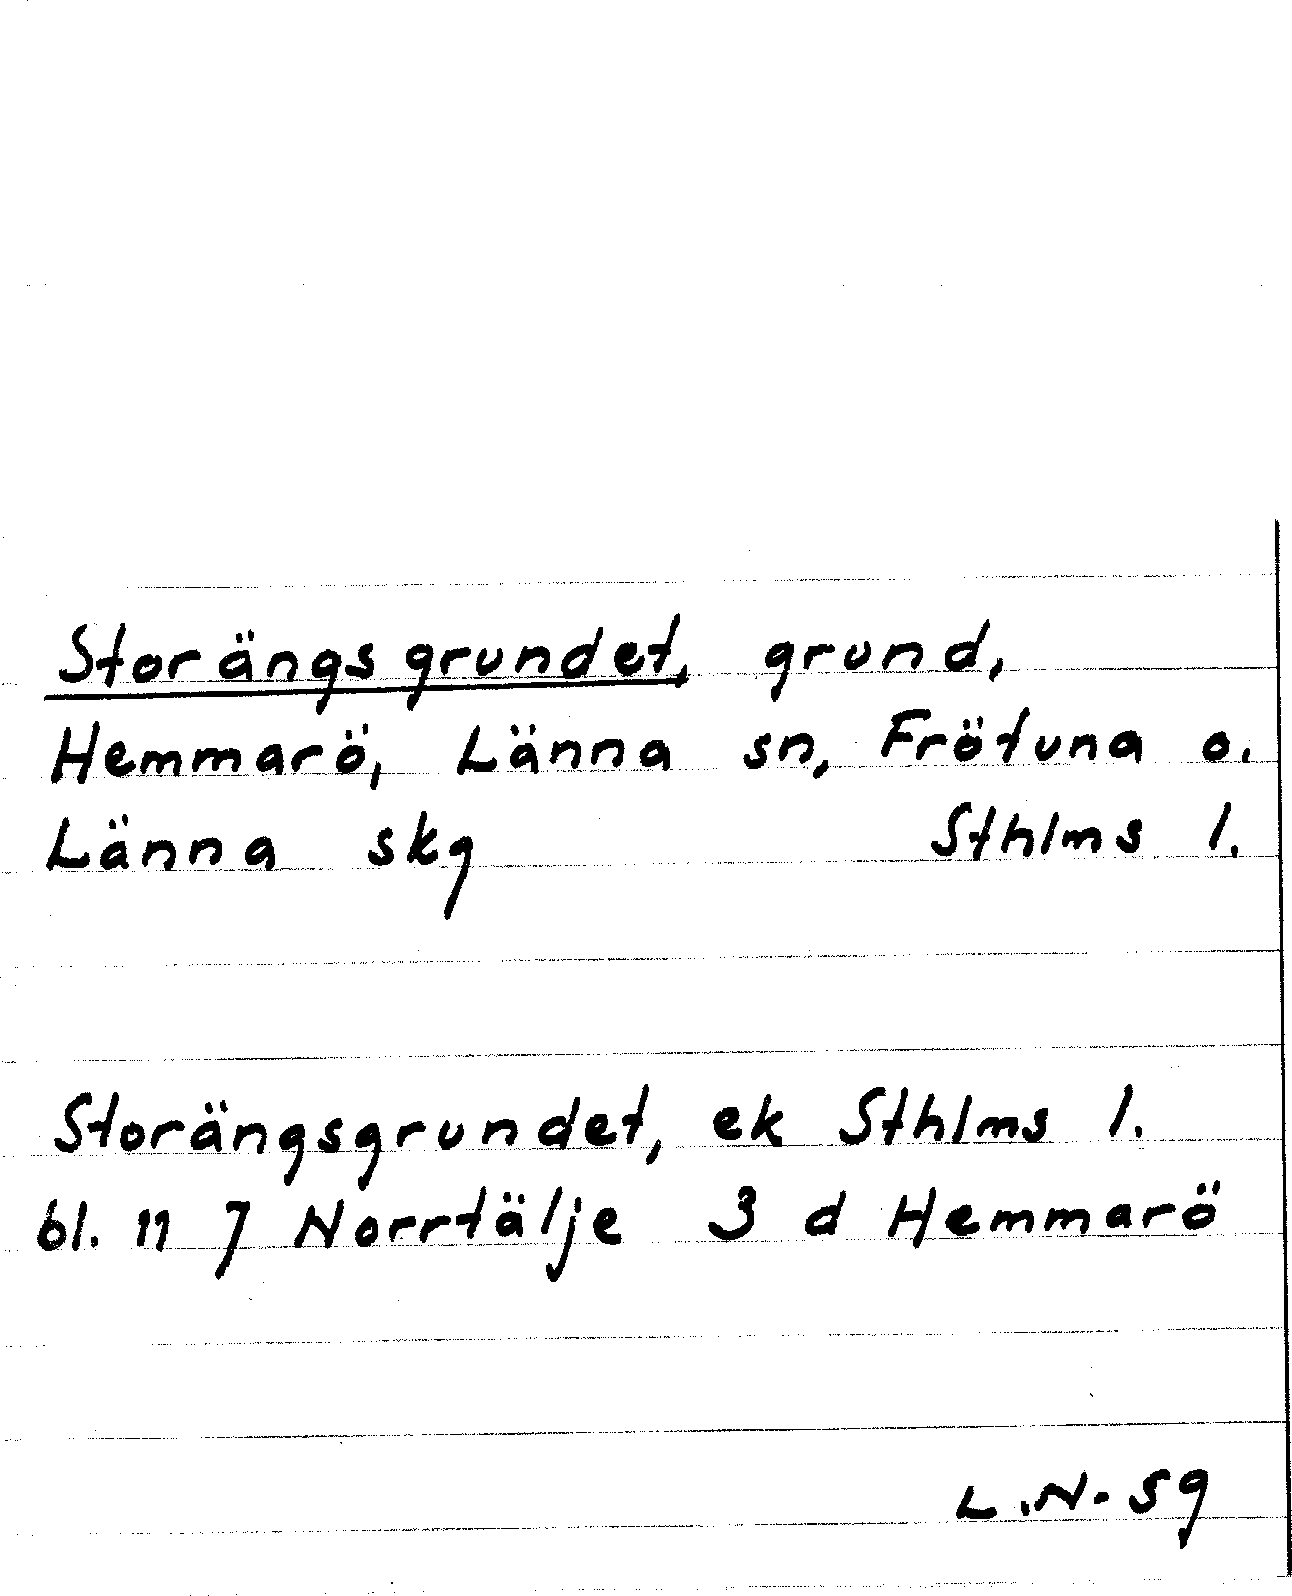 Storängsgrundet, grund,
Hemmarö, Länna sn, Frötuna o.
Länna skg Sthlms l.
Storängsgrundet, ek Sthlms l.
bl. 11 7 Norrtälje 3 d Hemmarö
L.N-sg